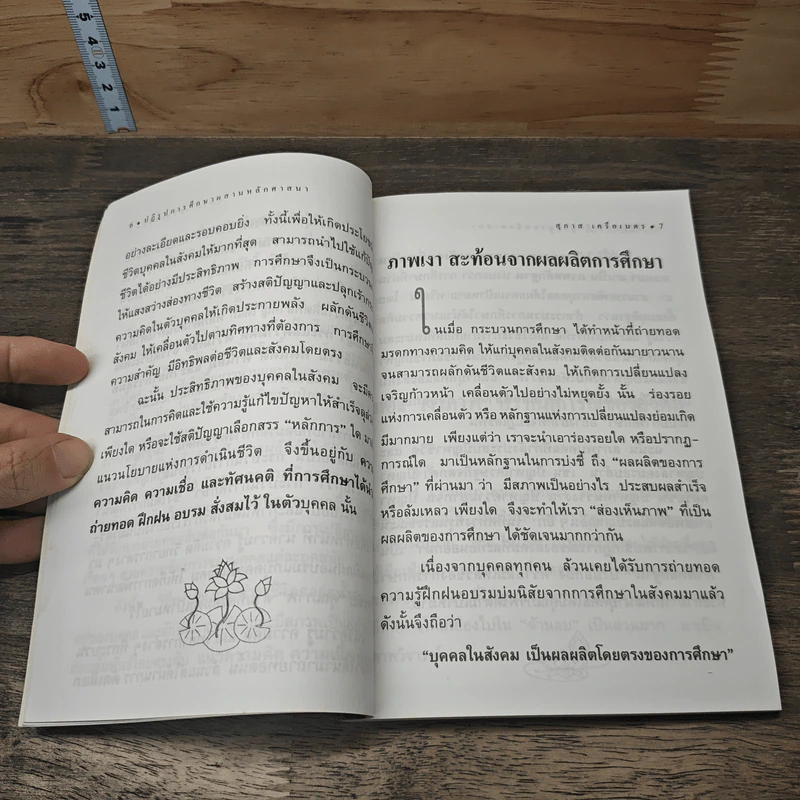 5
4
3
2
1
6 • ปฏิรูปการศึกษาผสานหลักศาสนา
อย่างละเอียดและรอบคอบยิ่ง ทั้งนี้เพื่อให้เกิดประโยชน์
ชีวิตบุคคลในสังคมให้มากที่สุด สามารถนำไปใช้แก้
ชีวิตได้อย่างมีประสิทธิภาพ การศึกษาจึงเป็นกระบวน
ให้แสงสว่างส่องทางชีวิต สร้างสติปัญญาและปลุกเร้า
ความคิดในตัวบุคคลให้เกิดประกายพลัง ผลักดันชีวิต
สังคม ให้เคลื่อนตัวไปตามทิศทางที่ต้องการ การศึกษา
ความสำคัญ มีอิทธิพลต่อชีวิตและสังคมโดยตรง
ฉะนั้น ประสิทธิภาพของบุคคลในสังคม จะมี
สามารถในการคิดและใช้ความรู้แก้ไขปัญหาให้สำเร็จลุล่วง
เพียงใด หรือจะใช้สติปัญญาเลือกสรร “หลักการ” ใด มา
แนวนโยบายแห่งการดำเนินชีวิต จึงขึ้นอยู่กับ ความ
ความคิด ความเชื่อ และทัศนคติ ที่การศึกษาได้
ถ่ายทอด ฝึกฝน อบรม สั่งสมไว้ ในตัวบุคคล นั้น
สุภาส เครือเนตร • 7
ภาพเงา สะท้อนจากผลผลิตการศึกษา
ในเมื่อ กระบวนการศึกษา ได้ทำหน้าที่ถ่ายทอด
มรดกทางความคิด ให้แก่บุคคลในสังคมติดต่อกันมายาวนาน
จนสามารถผลักดันชีวิตและสังคม ให้เกิดการเปลี่ยนแปลง
เจริญก้าวหน้า เคลื่อนตัวไปอย่างไม่หยุดยั้ง นั้น ร่องรอย
แห่งการเคลื่อนตัว หรือ หลักฐานแห่งการเปลี่ยนแปลงย่อมเกิด
มีมากมาย เพียงแต่ว่า เราจะนำเอาร่องรอยใด หรือปรากฏ-
การณ์ใด มาเป็นหลักฐานในการบ่งชี้ ถึง “ผลผลิตของการ
ศึกษา” ที่ผ่านมา ว่า มีสภาพเป็นอย่างไร ประสบผลสำเร็จ
หรือล้มเหลว เพียงใด จึงจะทำให้เรา “ส่องเห็นภาพ” ที่เป็น
ผลผลิตของการศึกษา ได้ชัดเจนมากกว่ากัน
เนื่องจากบุคคลทุกคน ล้วนเคยได้รับการถ่ายทอด
ความรู้ฝึกฝนอบรมบ่มนิสัยจากการศึกษาในสังคมมาแล้ว
ดังนั้นจึงถือว่า
“บุคคลในสังคม เป็นผลผลิตโดยตรงของการศึกษา”